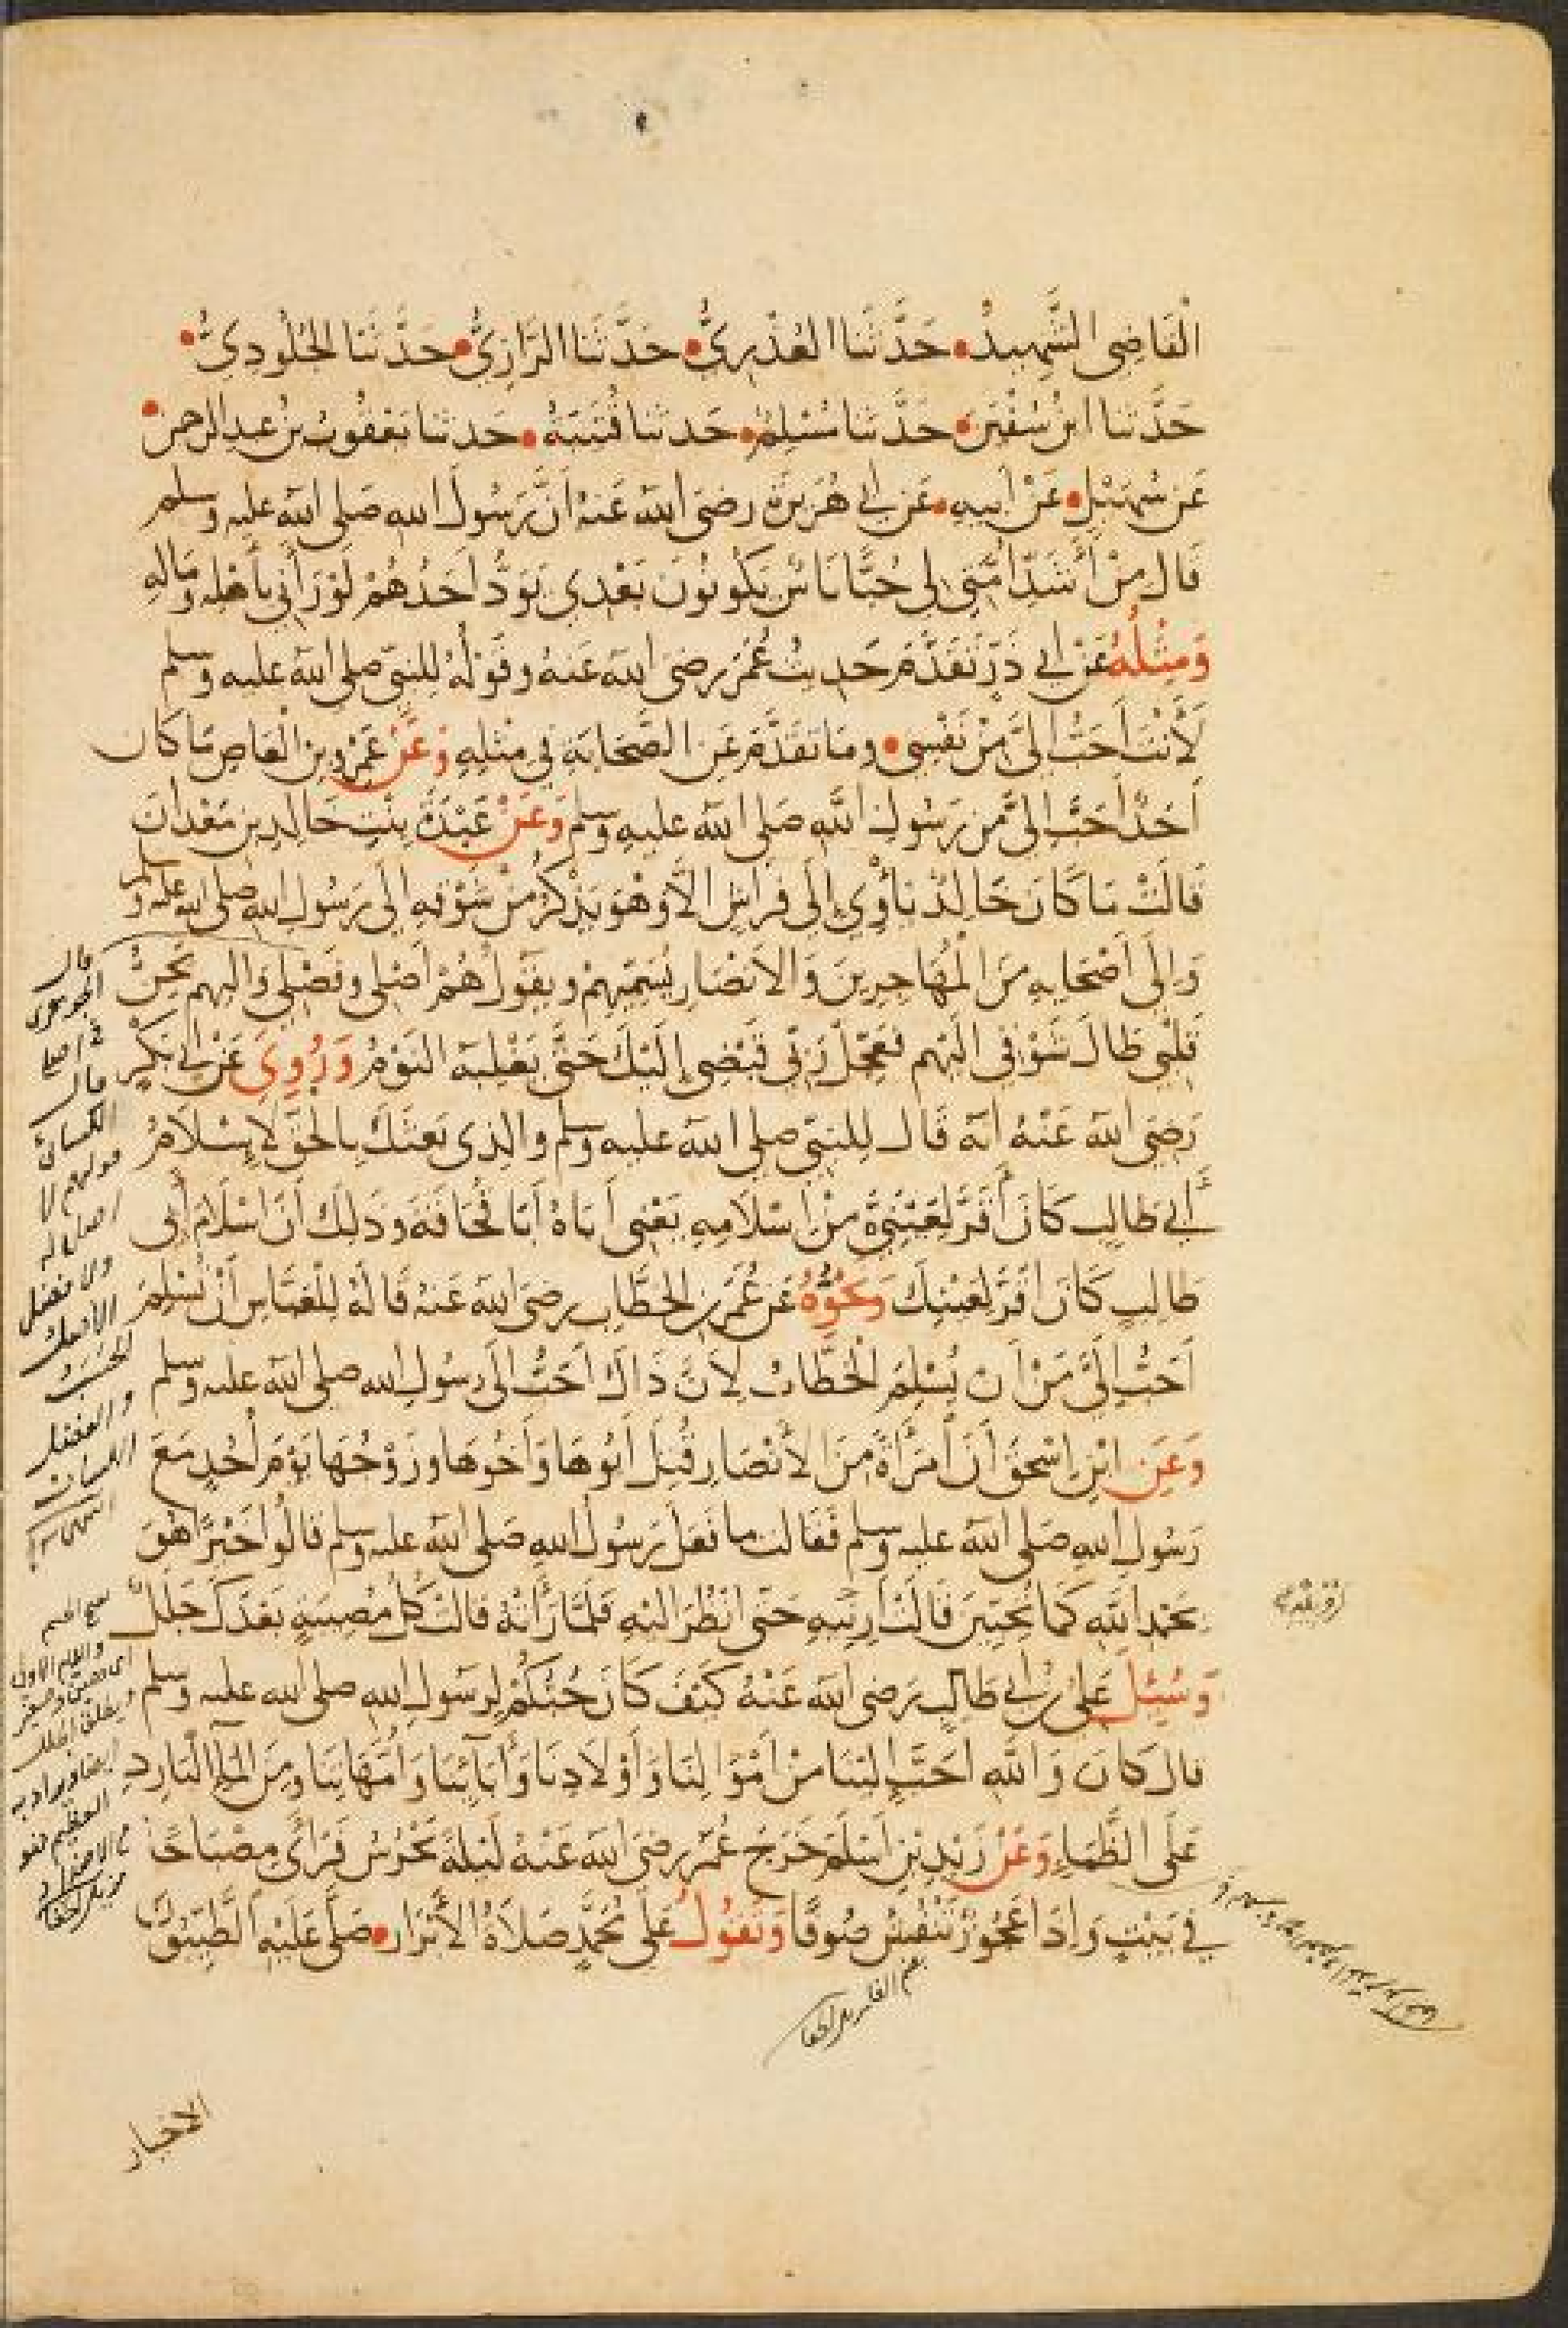 الْقَاضِي الشَّهِيدُ • حَدَّثَنَا الْعُذْرِيُّ • حَدَّثَنَا الرَّازِيُّ • حَدَّثَنَا الْجُلُودِيُّ •
حَدَّثَنَا ابْنُ سُفْيَنَ • حَدَّثَنَا مُسْلِمٌ • حَدثنا قُتَيْبَةُ • حَدثنا يَعْقُوبُ بْنُ عبدالرحمن
عَنْ سُهَيْلٍ • عَنْ أَبِيهِ • عَنْ أبي هُرَيْرَةَ رضيَ اللهُ عَنهُ أَنَّ رَسُولَ اللهِ صَلى اللهُ عَليهِ وسلم
قَالَ مِنْ أَشَدِّ أُمَّتِي لِي حُبًّا نَاسٌ يَكُونُونَ بَعْدِي يَوَدُّ أَحَدُهُمْ لَوْ رَآنِي بِأَهْلِهِ وَمَالِهِ
وَمِثْلُهُ عَنْ أبي ذَرٍّ تَقَدَّمَ حَدِيثُ عُمَرَ رضيَ اللهُ عَنهُ وقَوْلُهُ لِلنبيِّ صلى اللهُ عليه وسلم
لَأَنْتَ أَحَبُّ إِلَيَّ مِنْ نَفْسِي • وَمَا تَقَدَّمَ عَنِ الصَّحَابَةِ فِي مِثْلِهِ وَعَنْ عَمْرِو بنِ الْعَاصِ مَا كَانَ
أَحَدٌ أَحَبَّ إِلَيَّ مِن رَسُولِ اللَّهِ صَلى اللهُ عليهِ وسلم وَعَنْ عَبْدَةَ بِنْتِ خَالِدِ بنِ مَعْدَانَ
قَالَتْ مَا كَانَ خَالِدٌ يَأْوِي إِلَى فِرَاشٍ إِلَّا وَهُوَ يَذْكُرُ مِنْ شَوْقِهِ إِلَى رَسُولِ اللهِ صلى الله عليه وسلم
وَإِلَى أَصْحَابِهِ مِنَ الْمُهَاجِرِينَ وَالأَنْصَارِ يُسَمِّيهِمْ وَيَقُولُ هُمْ أَصْلِي وَفَصْلِي وَإليهم يَحِنُّ
قَلْبِي طَالَ شَوْقِي إِلَيْهِمْ فَعَجِّلْ رَبِّي قَبْضِي إِلَيْكَ حَتَّى يَغْلِبَهُ النَّوْمُ وَرُوِيَ عَنْ أبي بَكْرٍ
رَضِيَ اللهُ عَنْهُ أَنَّهُ قَالَ لِلنبيِّ صلى اللهُ عليه وسلم والذي بَعثَكَ بِالْحَقِّ لَإِسْلَامُ
أَبِي طَالِبٍ كَانَ أَقَرَّ لِعَيْنِي مِنْ إِسْلَامِهِ يَعْنِي أَبَاهُ أَبَا قُحَافَةَ وَذَلِكَ أَنَّ إِسْلَامَ أَبِي
طَالِبٍ كَانَ أَقَرَّ لِعَيْنِكَ وَنَحْوُهُ عَنْ عُمَرَ بنِ الخَطَّابِ رضيَ اللهُ عَنهُ قَالَهُ لِلْعَبَّاسِ أَنْ تُسْلِمَ
أَحَبُّ إِلَيَّ مِنْ أَنْ يُسْلِمَ الْخَطَّابُ لِأَنَّ ذَاكَ أَحَبُّ إِلَى رسُولِ اللهِ صلى الله عليه وسلم
وَعَنِ ابْنِ إِسْحَقَ أَنَّ امْرَأَةً مِنَ الأَنْصَارِ قُتِلَ أَبُوهَا وَأَخُوهَا وَزَوْجُهَا يَوْمَ أُحُدٍ مَعَ
رَسُولِ اللهِ صَلى اللهُ عليه وسلم فَقَالَت ما فَعَلَ رَسُولُ اللهِ صَلى اللهُ عليه وسلم قَالُوا خَيْرًا هُوَ
بِحَمْدِ اللَّهِ كَمَا تُحِبِّينَ قَالَتْ أَرِنِيهِ حَتَى أَنْظُرَ إِلَيْهِ فَلَمَّا رَأَتْهُ قَالَتْ كُلُّ مُصِيبَةٍ بَعْدَكَ جَلَلٌ
وَسُئِلَ عَلِيُّ بْنُ أَبي طَالِبٍ رَضيَ اللهُ عَنْهُ كَيْفَ كَانَ حُبُّكُمْ لِرَسُولِ اللهِ صلى الله عليه وسلم
قَالَ كَانَ وَاللَّهِ أَحَبَّ إِلَيْنَا مِنْ أَمْوَالِنَا وَأَوْلَادِنَا وَآبَائِنَا وَأُمَّهَاتِنَا وَمِنَ الْمَاءِ الْبَارِدِ
عَلَى الظَّمَاءِ وَعَنْ زَيْدِ بْنِ أَسْلَمَ خَرَجَ عُمَرُ رضيَ اللهُ عَنْهُ لَيْلَةً يَحْرُسُ فَرَأَى مِصْبَاحًا
فِي بَيْتٍ وَإِذَا عَجُوزٌ تَنْفُشُ صُوفًا وَتَقُولُ عَلَى مُحَمَّدٍ صَلَاةُ الأَبْرَارِ • صَلَّى عَلَيْهِ الطَّيِّبُونَ
الأخيار
قال
الجوهري
في اصل
قال
الكسائي
قولهم لا
اصل له
ولا فصل
الأصل
الحسب
والفصل
اللسان
انتهى